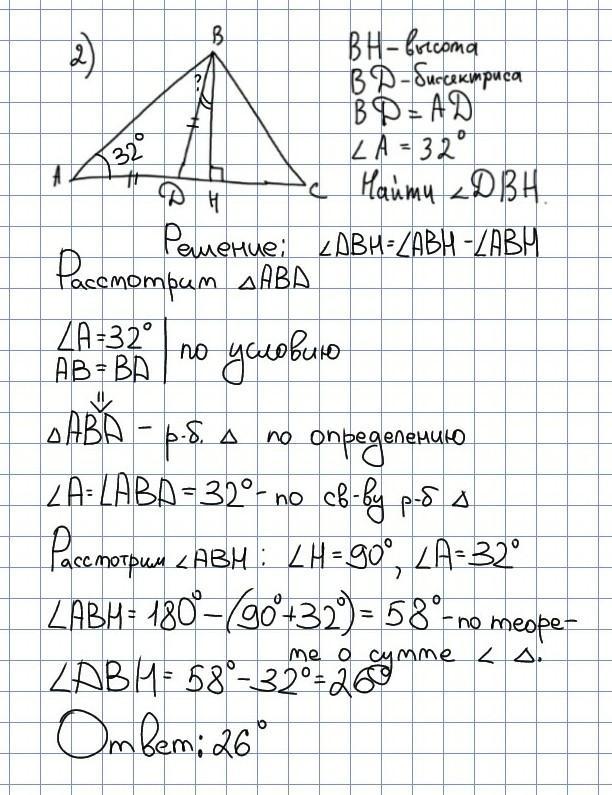 2)
B
?
32°
A
D
H
C
BH - высота
BD - биссектриса
BD = AD
∠A = 32°
Найти ∠DBH.
Решение: ∠DBH = ∠ABH - ∠ABH
Рассмотрим △ABD
∠A = 32°
AB = BD
по условию
⇓
△ABD - р.б. △ по определению
∠A = ∠ABD = 32° - по св-ву р-б △
Рассмотрим ∠ABH : ∠H = 90°, ∠A = 32°
∠ABH = 180° - (90° + 32°) = 58° - по теоре-
ме о сумме ∠ △.
∠DBH = 58° - 32° = 26°
Ответ: 26°